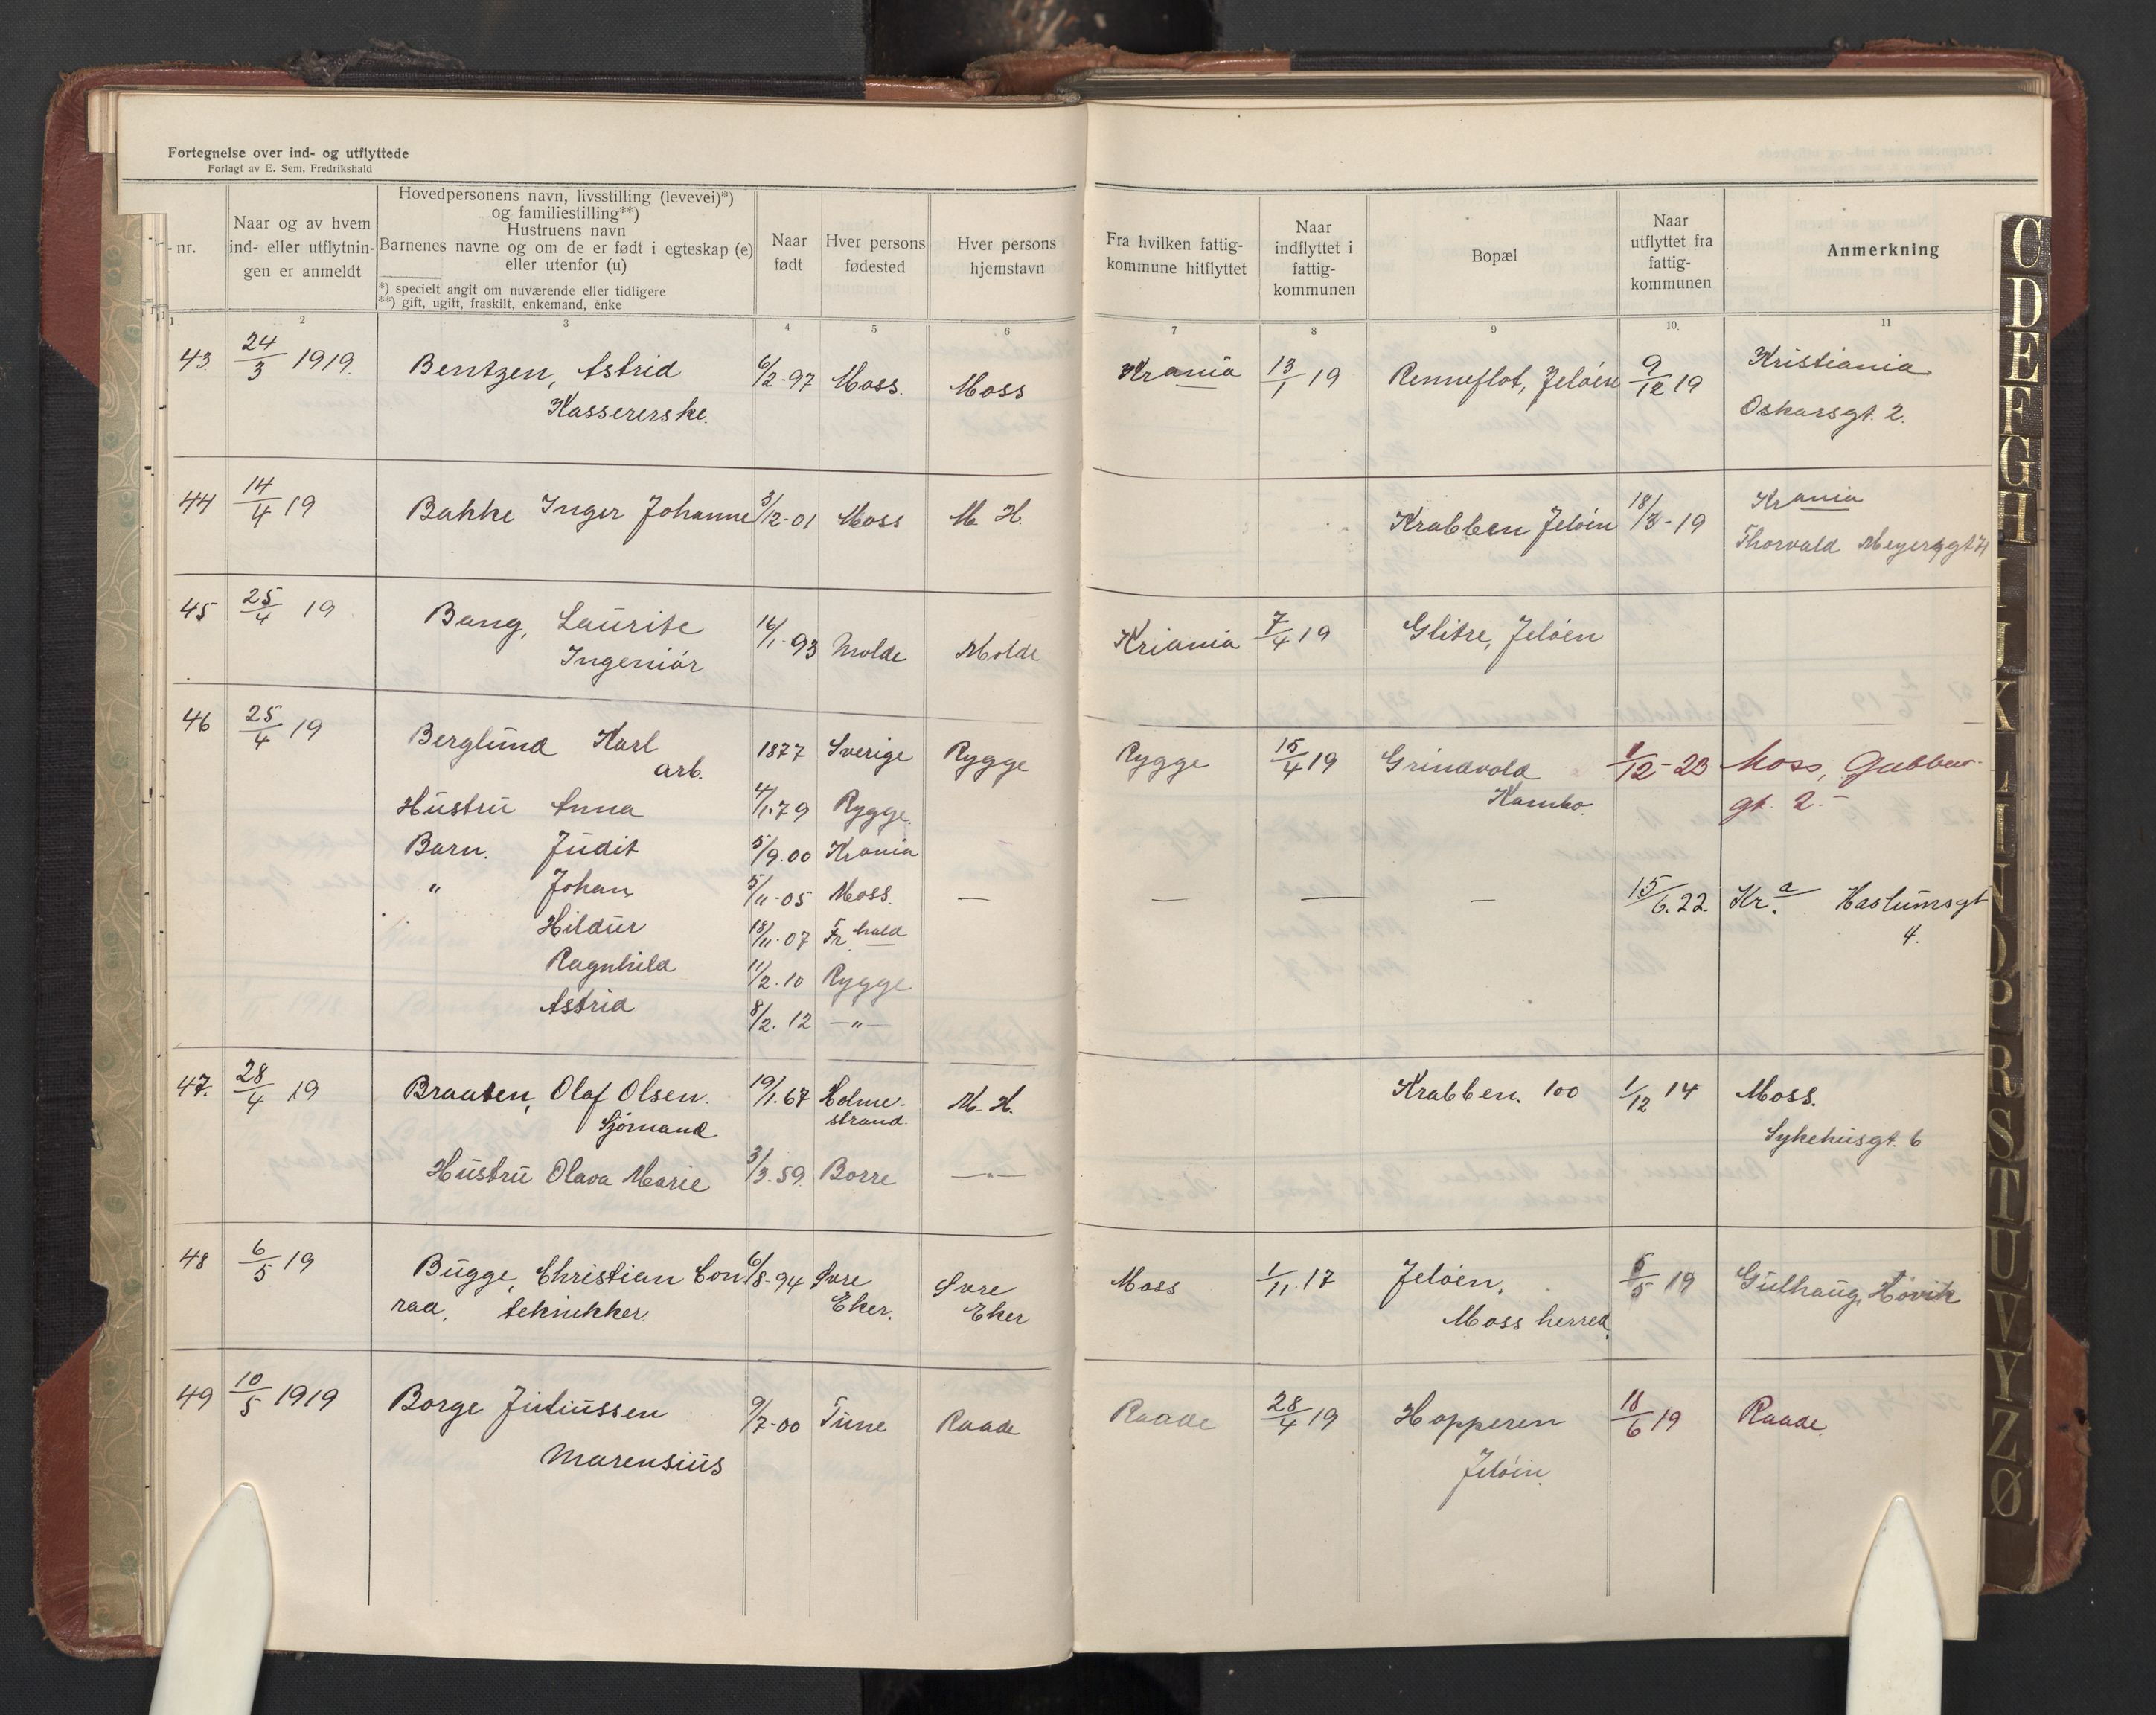 Fortegnelse over ind- og utflyttede
Forlagt av E. Sem, Fredrikshald
- nr.
Naar og av hvem
ind- eller utflytnin-
gen er anmeldt
Hovedpersonens navn, livsstilling (levevei)*)
og familiestilling**)
Hustruens navn
Barnenes navne og om de er født i egteskap (e)
eller utenfor (u)
*) specielt angit om nuværende eller tidligere
**) gift, ugift, fraskilt, enkemand, enke
Naar
født
Hver persons
fødested
Hver persons
hjemstavn
Fra hvilken fattig-
kommune hitflyttet
Naar
indflyttet i
fattig-
kommunen
Bopæl
Naar
utflyttet fra
fattig-
kommunen
Anmerkning
1 2 3 4 5 6 7 8 9 10. 11
43. 24/3 1919. Bentzen, Astrid 6/2-97 Moss. Moss Krania 13/1 19 Renneflot, Jeløien 9/12 19 Kristiania
Kassererske. Oskarsgt. 2.
44 14/4 19 Bakke Inger Johanne 3/12-01 Moss M. H. Krabben Jeløin 18/3-19 Krania
Thorvald Meyersgt
45 25/4 19 Bang, Laurits 16/1-93 Molde Molde Kriania 7/4 19 Glitre, Jeløen
Ingeniør
46 25/4 19 Berglund Karl 1877 Sverige Rygge Rygge 15/4 19 Grindvold 1/12-23 Moss,
arb. Kambo. gt. 2.-
Hustru Anna 4/1.79 Rygge.
Barn. Judit 5/9.00 Krania
" Johan, 5/11-05 Moss. — — — — 15/6.22. Kr.a Haslumsgt
4.
Hildur 18/11-07 Fr.hald
Ragnhild 11/2.10 Rygge
Astrid 8/2.12 —"—
47. 28/4 19 Braaten, Olaf Olsen. 19/1.67 Holme- M. H. Krabben. 100 1/12 14 Moss.
Sjømand strand Sykehusgt. 6
Hustru Olava Marie 3/3.59. Borre —"—
48 6/5 19 Bugge, Christian Con 6/8-94 Øvre Øvre Moss 1/11.17 Jeløen, 6/5 19 Gulhaug, Høvik
rad, teknikker. Eker. Eker Moss herred.
49 10/5 1919 Borge Juliussen 9/7-00 Tune Raade Raade 28/4 19 Hopperen 18/6 19 Raade.
Marensius Jeløin.
C
D
E
F
G
H
I
J
K
L
M
N
O
P
R
S
T
U
V
Y
Z
Ø